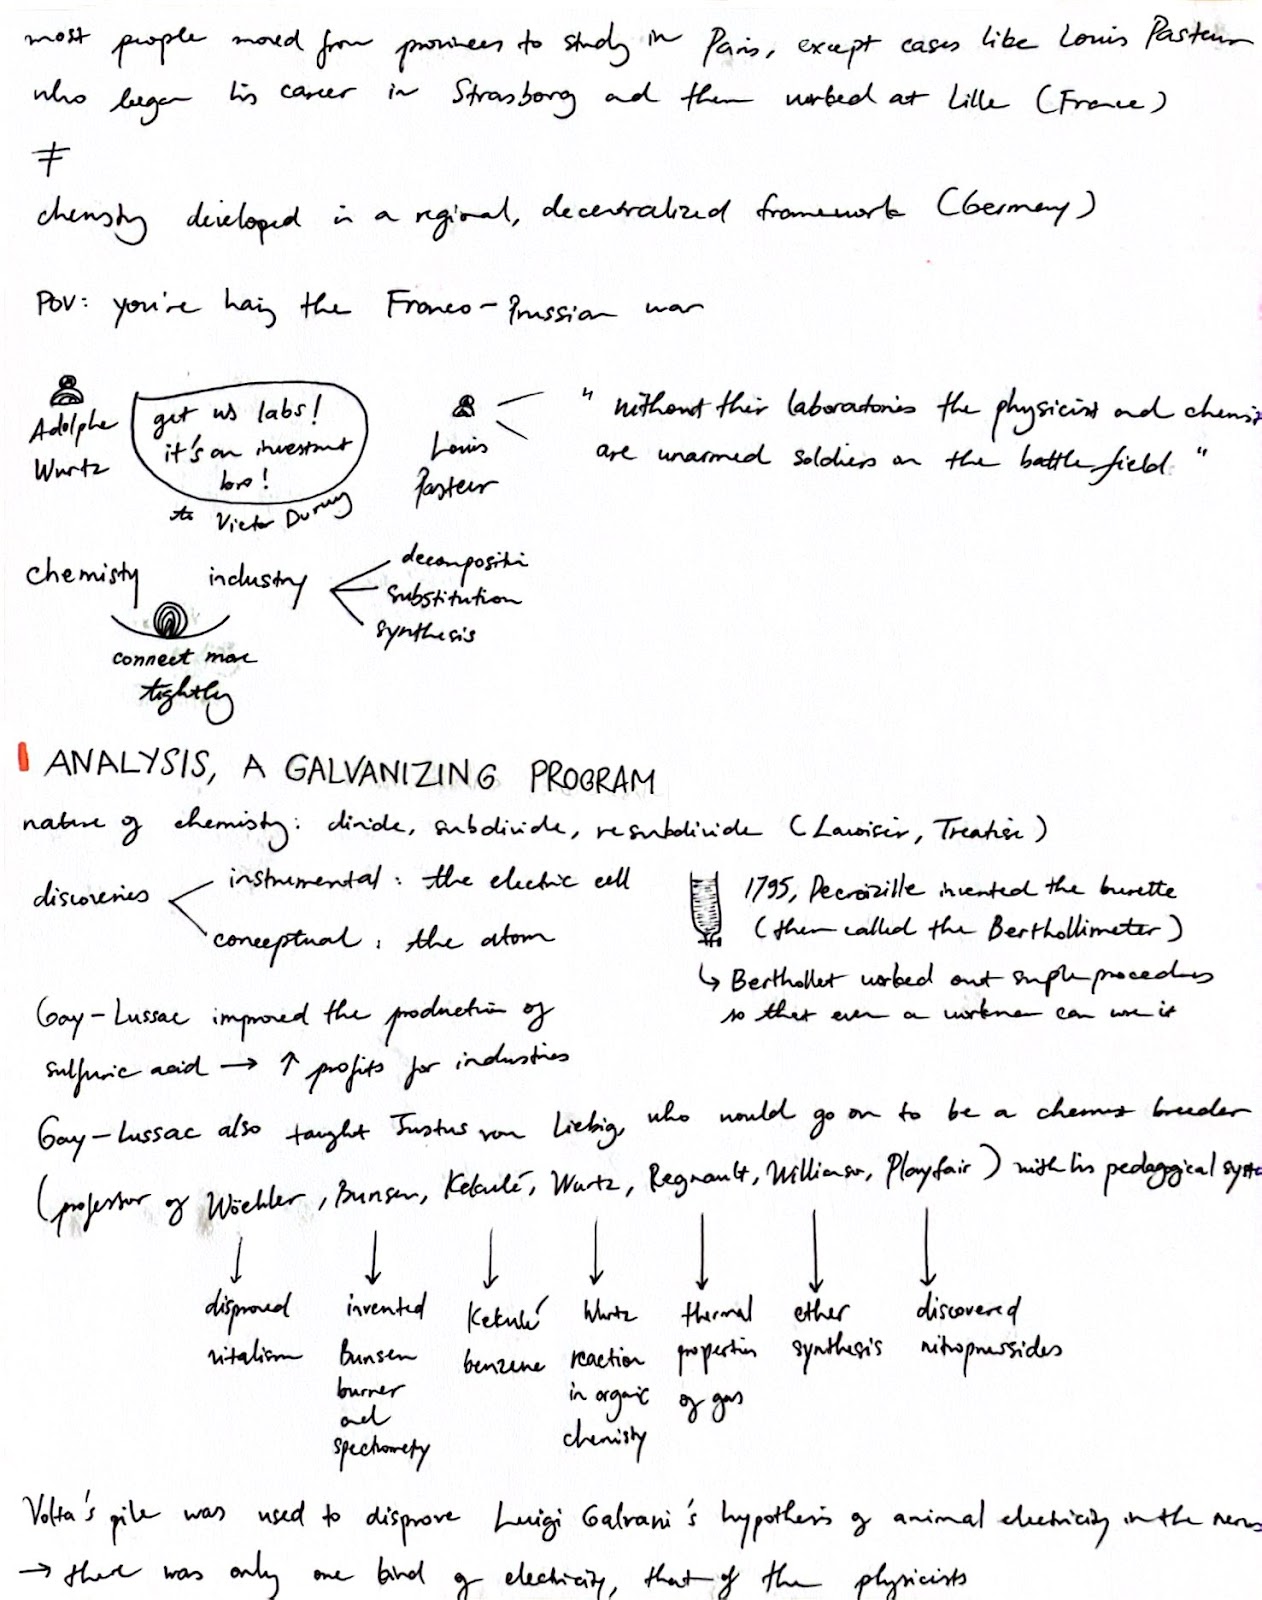 most people moved from provinces to study in Paris, except cases like Louis Pasteur
who began his career in Strasborg and then worked at Lille (France)
≠
chemistry developed in a regional, decentralized framework (Germany)
POV: you're having the Franco-Prussian war
Adolphe
Wurtz
get us labs!
it's an investment
bro!
to Victor Duruy
Louis
Pasteur
"Without their laboratories the physicist and chemist
are unarmed soldiers on the battlefield."
chemistry industry
decomposition
substitution
synthesis
connect more
tightly
ANALYSIS, A GALVANIZING PROGRAM
nature of chemistry: divide, subdivide, resubdivide (Lavoisier, Treatise)
discoveries
instrumental: the electric cell
conceptual: the atom
1795, Decroizille invented the burette
(then called the Berthollimeter)
↳ Berthollet worked out simple procedures
so that even a workman can use it
Gay-Lussac improved the production of
sulfuric acid → ↑ profits for industries
Gay-Lussac also taught Justus von Liebig, who would go on to be a chemist breeder
(professor of Wöehler, Bunsen, Kekulé, Wurtz, Regnault, Williamson, Playfair) with his pedagogical syste
disproved
vitalism
invented
Bunsen
burner
and
spectrometry
Kekulé
benzene
Wurtz
reaction
in organic
chemistry
thermal
properties
of gas
ether
synthesis
discovered
nitroprussides
Volta's pile was used to disprove Luigi Galvani's hypothesis of animal electricity in the nerves
→ there was only one kind of electricity, that of the physicists